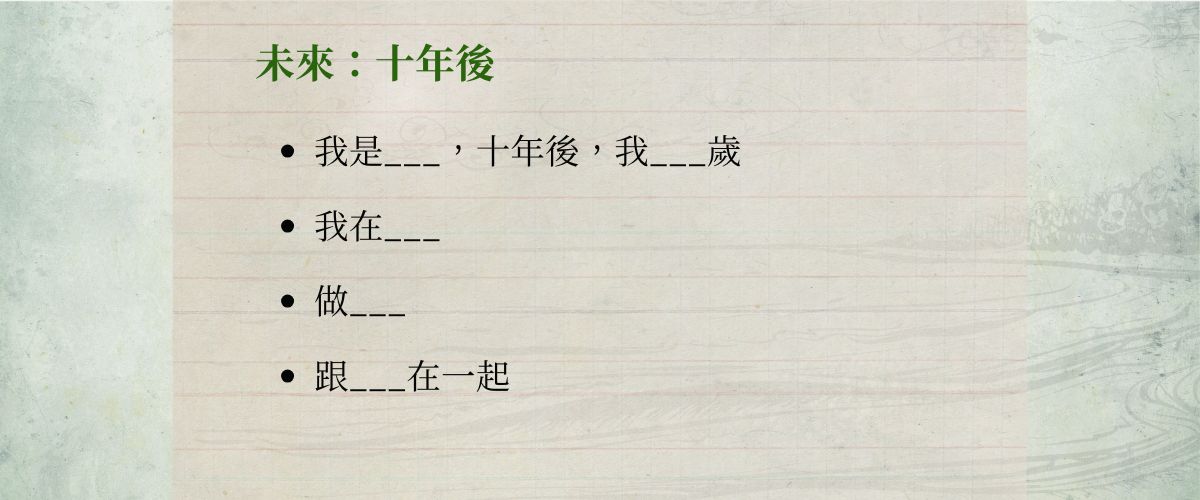 未來：十年後
• 我是___，十年後，我___歲
• 我在___
• 做___
• 跟___在一起